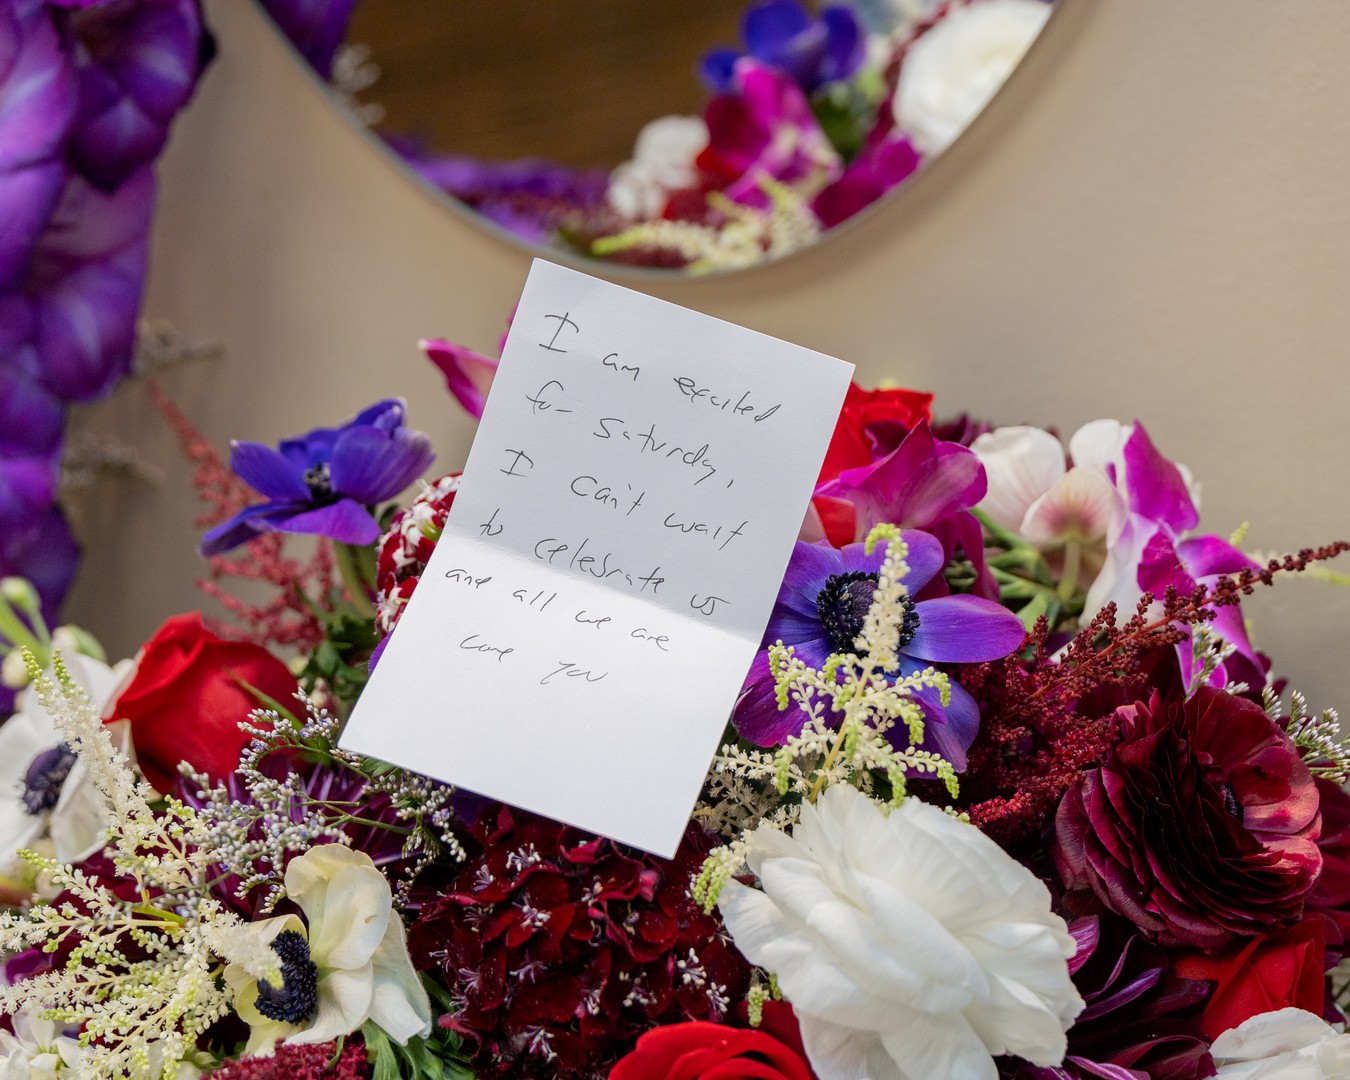 I am excited
for Saturday,
I can't wait
to celebrate us
and all we are
Love you